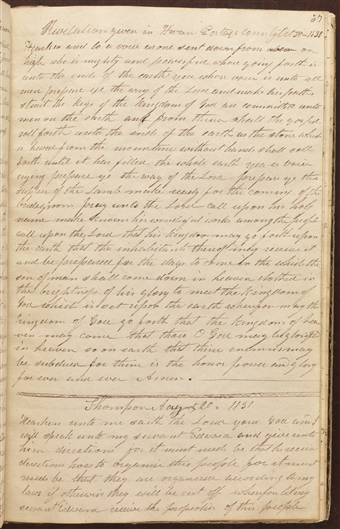 37
Revelation given in Hiram Portage County Oct 30 1831
Hearken and lo a voice as one sent down from on
high who is mighty and powerful whose going forth is
unto the ends of the earth yea whose voice is unto all
men prepare ye the way of the Lord and make his path
strait the keys of the kingdom of God are committed unto
men on the earth and from thence shall the gospel
roll forth unto the ends of the earth as the stone which
is hewn from the mountain without hands shall roll
forth until it has filled the whole earth yea a voice
crying prepare ye the way of the Lord prepare ye the
supper of the Lamb make ready for the coming of the
bridegroom pray unto the Lord call upon his holy
name make known his wonderful works among the people
call upon the Lord that his kingdom may go forth upon
the earth that the inhabitants thereof may receive it
and be prepared for the days to come in the which the
son of man shall come down in heaven clothed in
the brightness of his glory to meet the kingdom of
God which is set upon the earth wherefore may the
kingdom of God go forth that the kingdom of hea
ven may come that thou O God may be glorified
in heaven so on earth that thine enemies may
be subdued for thine is the honor power and glory
for ever and ever Amen.
Thompson 20 1831
Hearken unto me saith the Lord your God and I
will speak unto my servant Edward and give unto
him directions for it must needs be that he receive
directions how to organize this people for it must
needs be that they are organized according to my
laws if otherwise they will be cut off wherefore let my
servant Edward receive the properties of this people